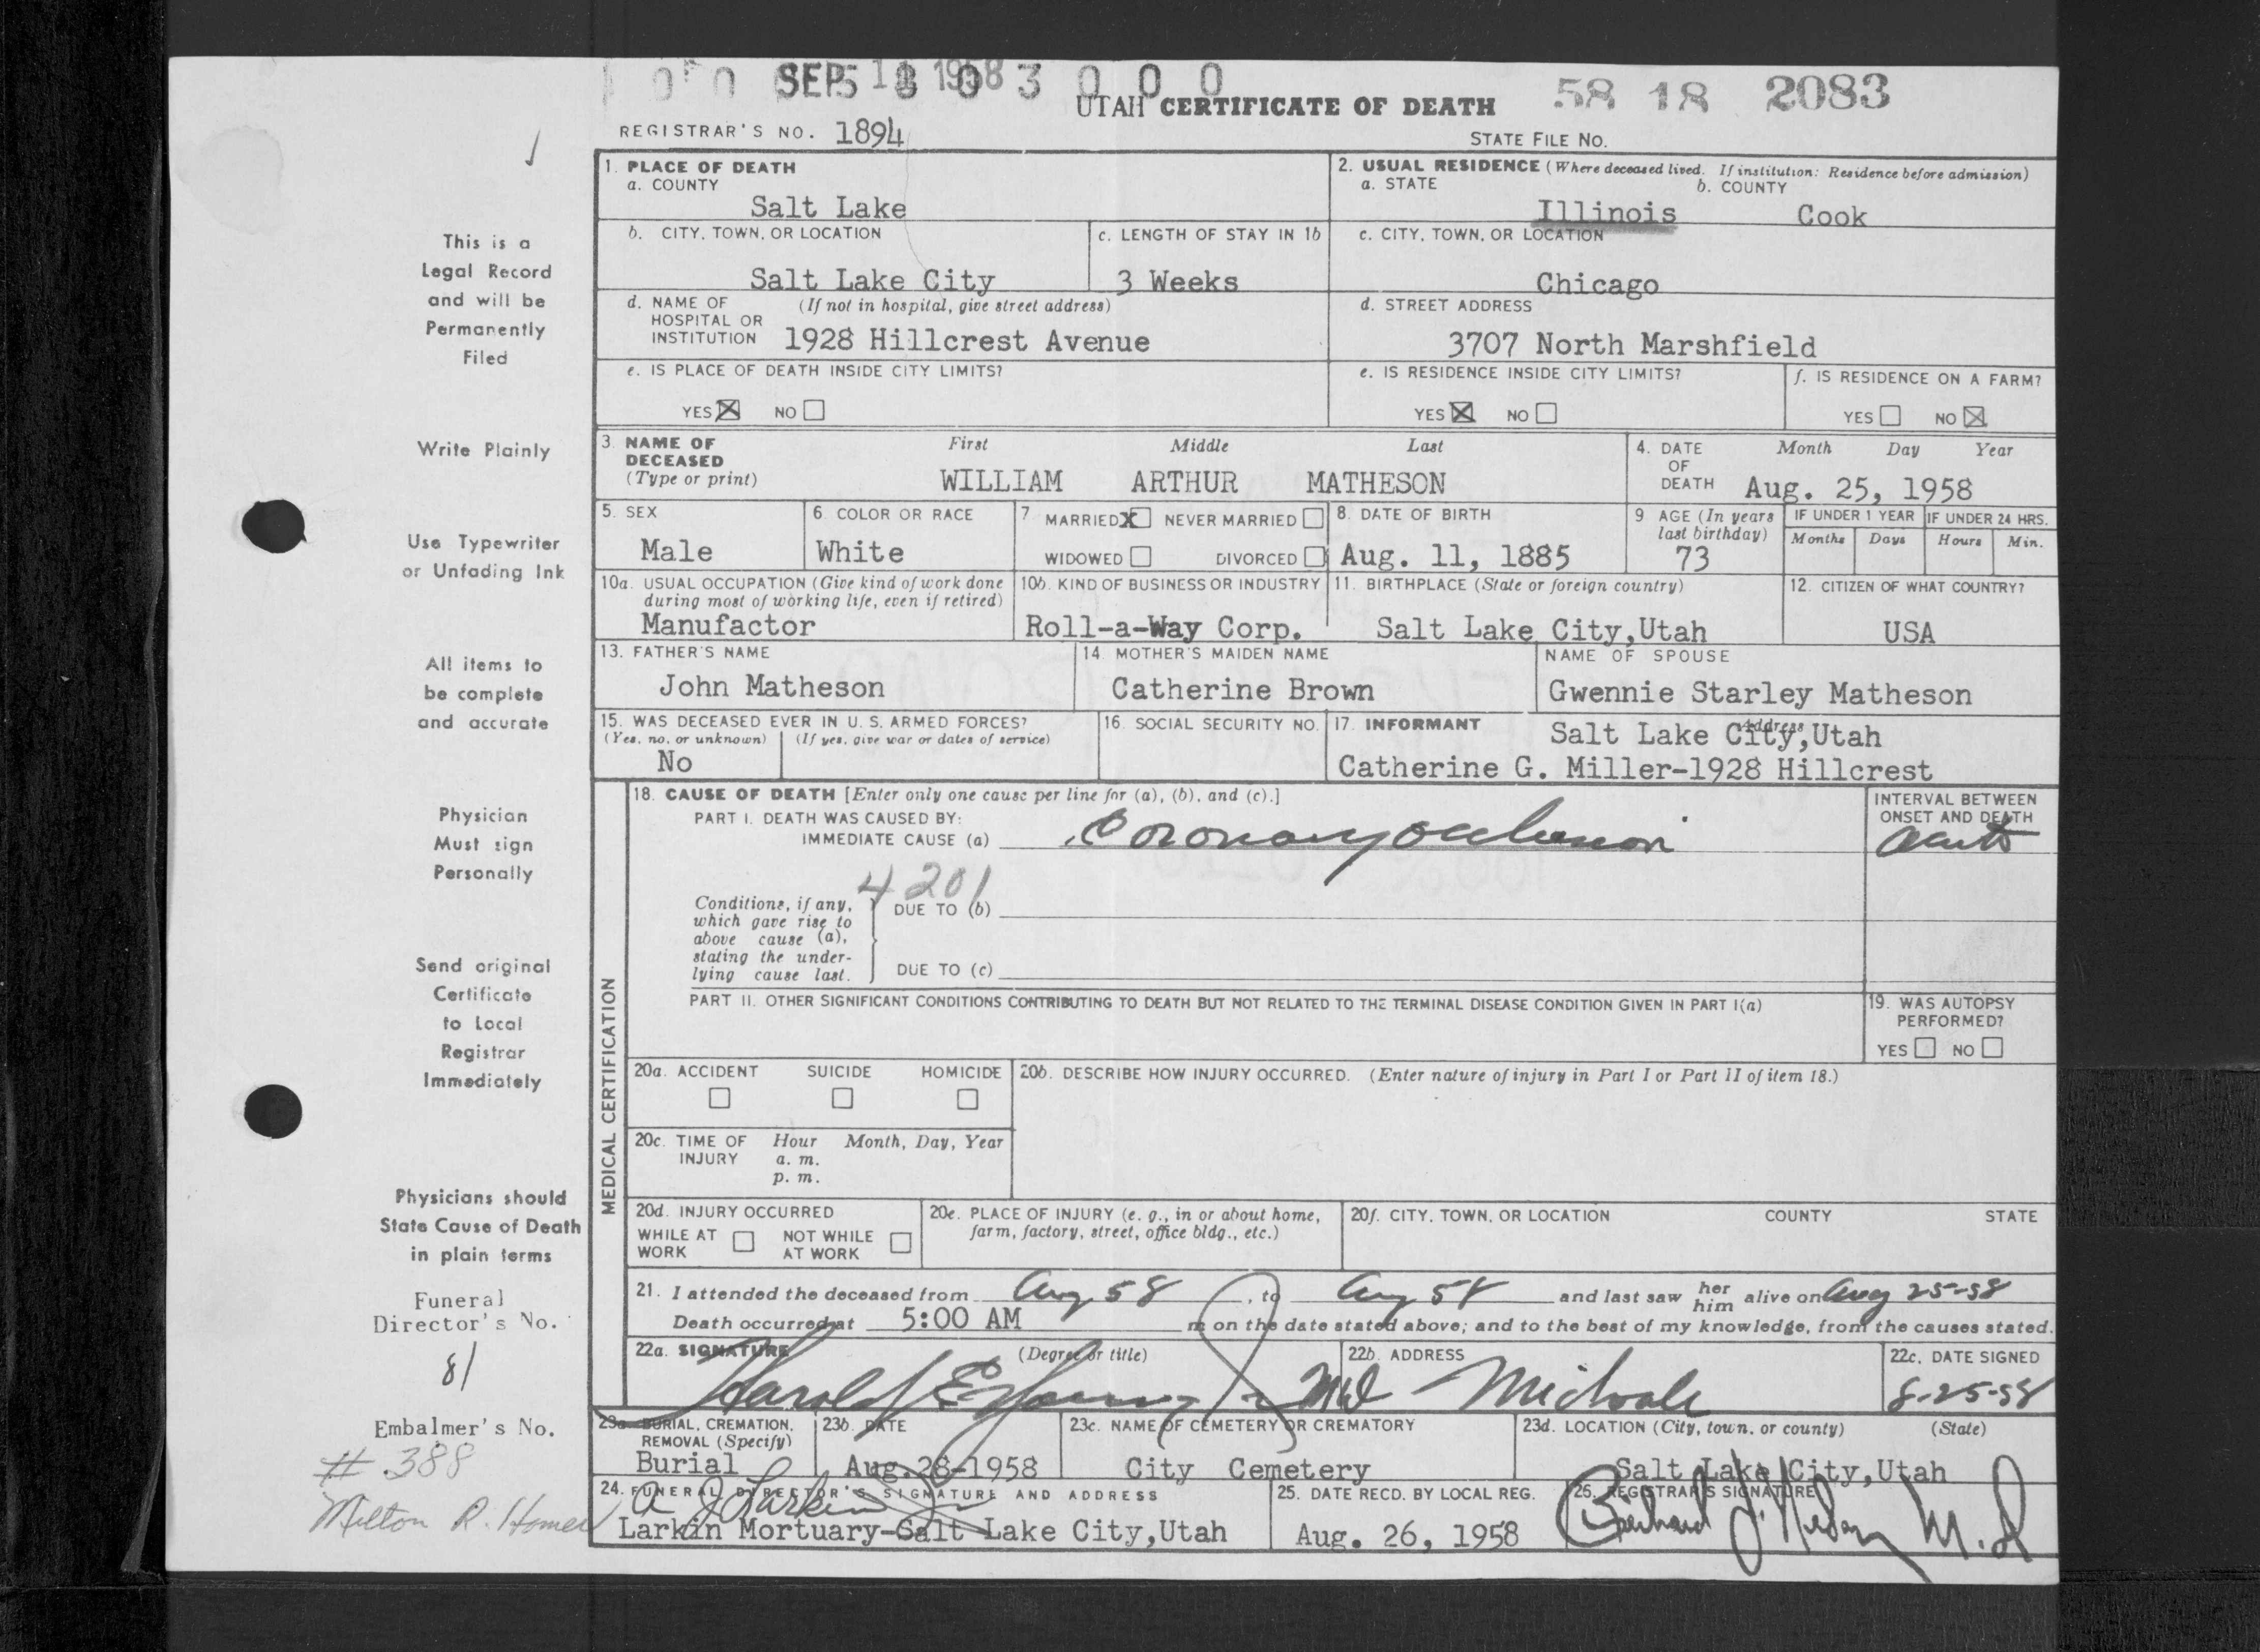 SEP 1958 8 0 3 0 0 0
58 18 2083
UTAH CERTIFICATE OF DEATH
REGISTRAR'S NO. 1894
STATE FILE NO.
1. PLACE OF DEATH
a. COUNTY
Salt Lake
2. USUAL RESIDENCE (Where deceased lived. If institution: Residence before admission)
a. STATE b. COUNTY
Illinois Cook
b. CITY, TOWN, OR LOCATION
Salt Lake City
c. LENGTH OF STAY IN 1b
3 Weeks
c. CITY, TOWN, OR LOCATION
Chicago
d. NAME OF (If not in hospital, give street address)
HOSPITAL OR
INSTITUTION 1928 Hillcrest Avenue
d. STREET ADDRESS
3707 North Marshfield
e. IS PLACE OF DEATH INSIDE CITY LIMITS?
YES NO
e. IS RESIDENCE INSIDE CITY LIMITS?
YES NO
f. IS RESIDENCE ON A FARM?
YES NO
3. NAME OF First Middle Last
DECEASED
(Type or print) WILLIAM ARTHUR MATHESON
4. DATE Month Day Year
OF
DEATH Aug. 25, 1958
5. SEX
Male
6. COLOR OR RACE
White
7. MARRIED X NEVER MARRIED
WIDOWED DIVORCED
8. DATE OF BIRTH
Aug. 11, 1885
9 AGE (In years
last birthday)
73
IF UNDER 1 YEAR IF UNDER 24 HRS.
Months Days Hours Min.
10a. USUAL OCCUPATION (Give kind of work done
during most of working life, even if retired)
Manufactor
10b. KIND OF BUSINESS OR INDUSTRY
Roll-a-Way Corp.
11. BIRTHPLACE (State or foreign country)
Salt Lake City,Utah
12. CITIZEN OF WHAT COUNTRY?
USA
13. FATHER'S NAME
John Matheson
14. MOTHER'S MAIDEN NAME
Catherine Brown
NAME OF SPOUSE
Gwennie Starley Matheson
15. WAS DECEASED EVER IN U. S. ARMED FORCES?
(Yes, no, or unknown) (If yes, give war or dates of service)
No
16. SOCIAL SECURITY NO.
17. INFORMANT Address
Salt Lake City,Utah
Catherine G. Miller-1928 Hillcrest
MEDICAL CERTIFICATION
18. CAUSE OF DEATH [Enter only one cause per line for (a), (b), and (c).]
PART I. DEATH WAS CAUSED BY:
IMMEDIATE CAUSE (a) Coronary occlusion
INTERVAL BETWEEN
ONSET AND DEATH
acute
4201
Conditions, if any,
which gave rise to
above cause (a),
stating the under-
lying cause last.
DUE TO (b)
DUE TO (c)
PART II. OTHER SIGNIFICANT CONDITIONS CONTRIBUTING TO DEATH BUT NOT RELATED TO THE TERMINAL DISEASE CONDITION GIVEN IN PART I(a)
19. WAS AUTOPSY
PERFORMED?
YES NO
20a. ACCIDENT SUICIDE HOMICIDE
20b. DESCRIBE HOW INJURY OCCURRED. (Enter nature of injury in Part I or Part II of item 18.)
20c. TIME OF Hour Month, Day, Year
INJURY a. m.
p. m.
20d. INJURY OCCURRED
WHILE AT NOT WHILE
WORK AT WORK
20e. PLACE OF INJURY (e. g., in or about home,
farm, factory, street, office bldg., etc.)
20f. CITY, TOWN, OR LOCATION COUNTY STATE
21. I attended the deceased from Aug 58, to Aug 58 and last saw her him alive on Aug 25-58
Death occurred at 5:00 AM m on the date stated above; and to the best of my knowledge, from the causes stated.
22a. SIGNATURE (Degree or title)
Harold E Young MD
22b. ADDRESS
Midvale
22c. DATE SIGNED
8-25-58
23a. BURIAL, CREMATION,
REMOVAL (Specify)
Burial
23b. DATE
Aug.28-1958
23c. NAME OF CEMETERY OR CREMATORY
City Cemetery
23d. LOCATION (City, town, or county) (State)
Salt Lake City,Utah
24. FUNERAL DIRECTOR'S SIGNATURE AND ADDRESS
A J Larkin
Larkin Mortuary-Salt Lake City,Utah
25. DATE RECD. BY LOCAL REG.
Aug. 26, 1958
26. REGISTRAR'S SIGNATURE
M.D
This is a
Legal Record
and will be
Permanently
Filed
Write Plainly
Use Typewriter
or Unfading Ink
All items to
be complete
and accurate
Physician
Must sign
Personally
Send original
Certificate
to Local
Registrar
Immediately
Physicians should
State Cause of Death
in plain terms
Funeral
Director's No.
81
Embalmer's No.
# 388
Milton R. Homer